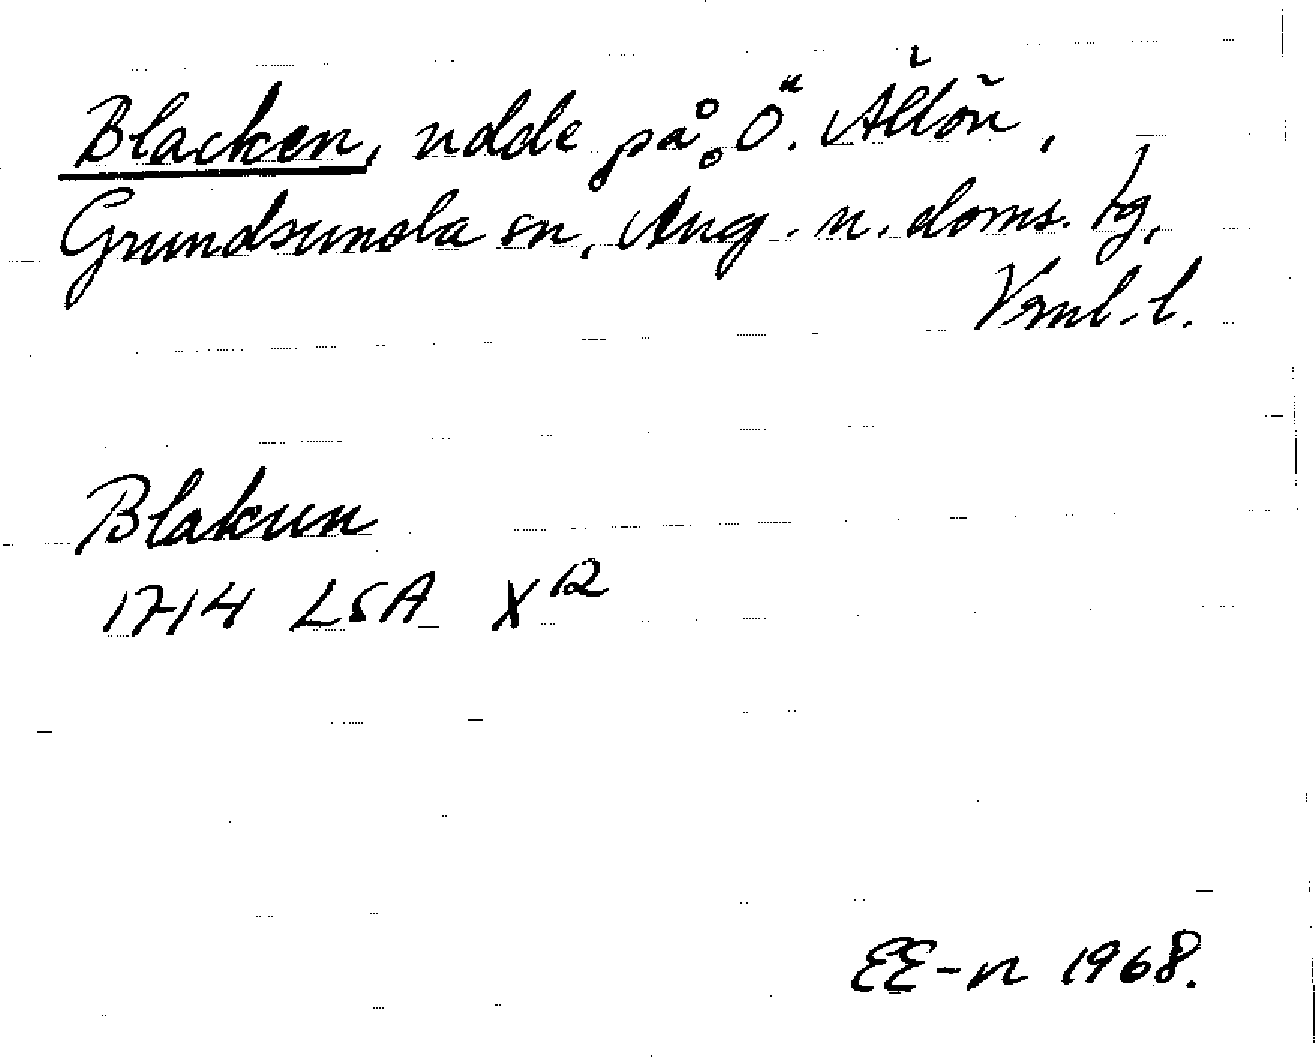 Blacken, udde på Ö. Ältön,
Grundsunda sn, Ång. n. doms. tg,
Vrnl. l.
Blakun
1714 LSA X 12
EE-n 1968.